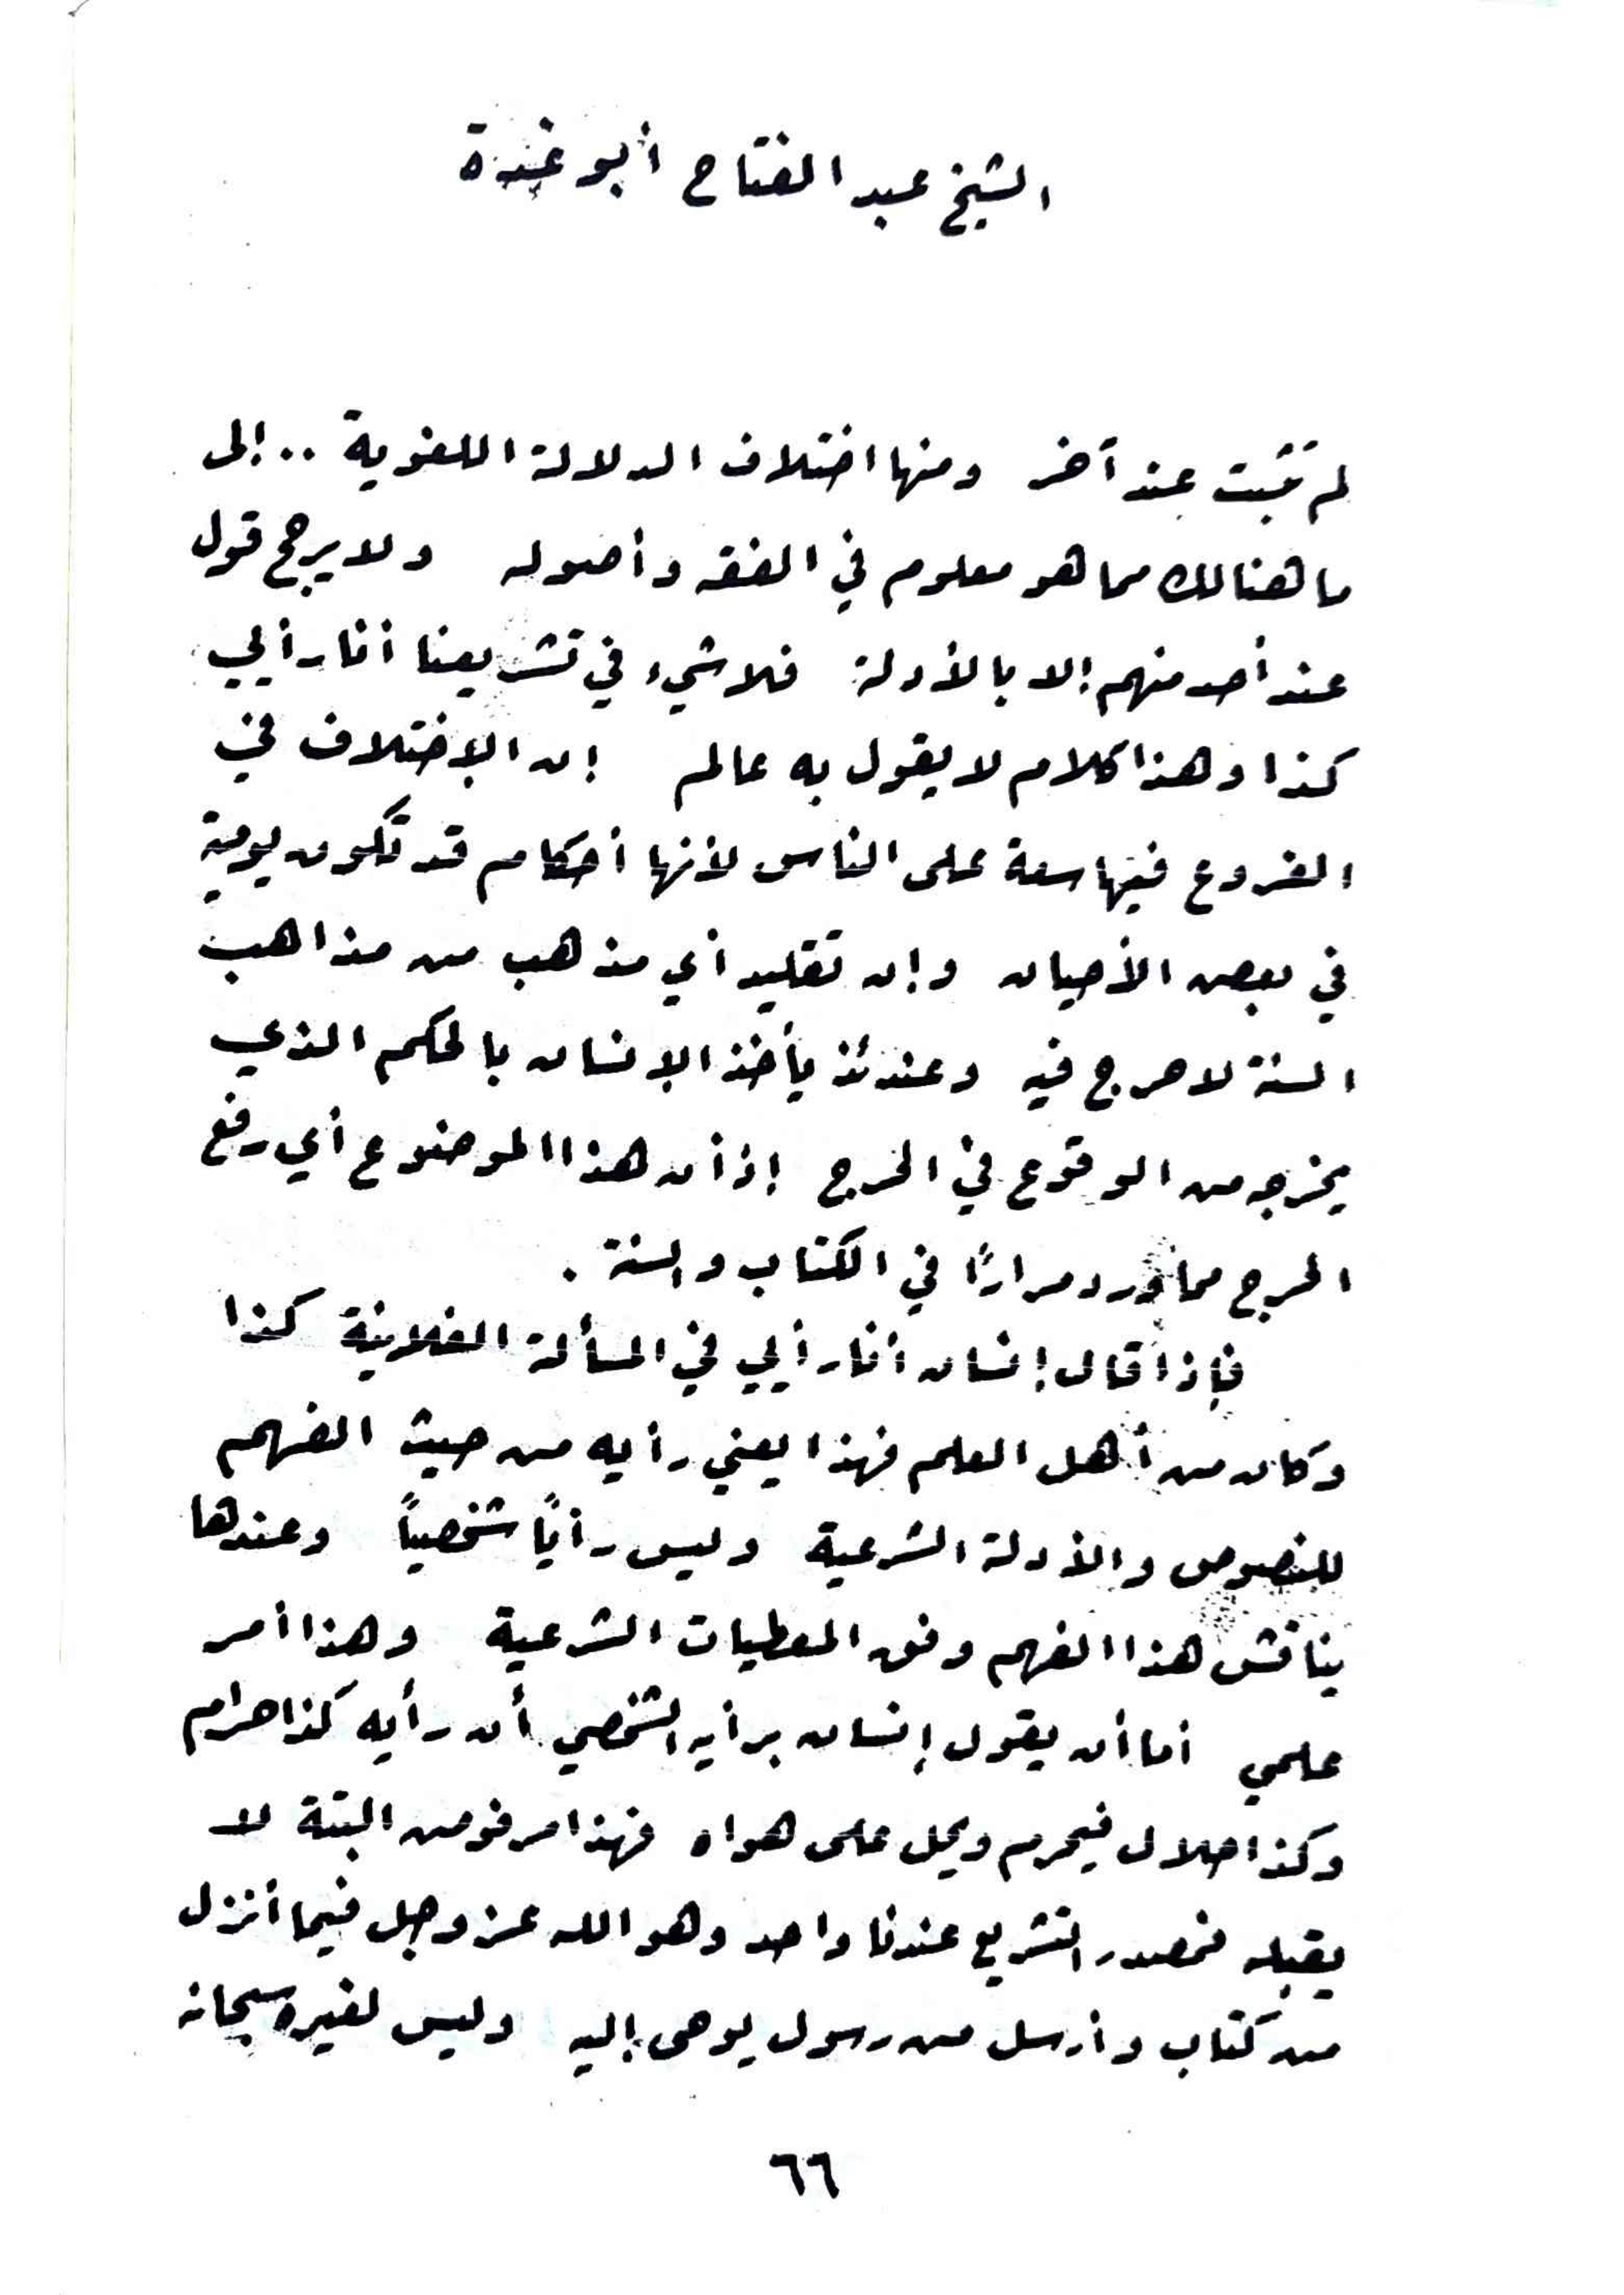 الشيخ عبد الفتاح أبو غدة
لم تثبت عند آخر ومنها اختلاف الدلالة اللغوية .. إلى
ما هنالك مما هو معلوم في الفقه وأصوله ولا يرجح قول
عند أحد منهم إلا بالأدلة فلا شيء في تشريعنا أنا رأيي
كذا وهذا كلام لا يقول به عالم إن الإختلاف في
الفروع فيها سعة على الناس لأنها أحكام قد تكون يومية
في بعض الأحيان وإن تقليد أي مذهب من مذاهب
السنة لا حرج فيه وعندئذ يأخذ الإنسان بالحكم الذي
يخرجه من الوقوع في الحرج إذ أن هذا الموضوع أي رفع
الحرج مما ورد مرارًا في الكتاب والسنة .
فإذا قال إنسان أنا رأيي في المسألة الفلانية كذا
وكان من أهل العلم فهذا يعني رأيه من حيث الفهم
للنصوص والأدلة الشرعية وليس رأيًا شخصيًا وعندها
يناقش هذا الفهم وفق المعطيات الشرعية وهذا أمر
علمي أما أن يقول إنسان برأيه الشخصي أن رأيه كذا حرام
وكذا حلال فيحرم ويحل على هواه فهذا مرفوض البتة لا
يقبله فمصدر التشريع عندنا واحد وهو الله عز وجل فيما أنزل
من كتاب وأرسل من رسول يوحى إليه وليس لغيره سبحانه
٦٦